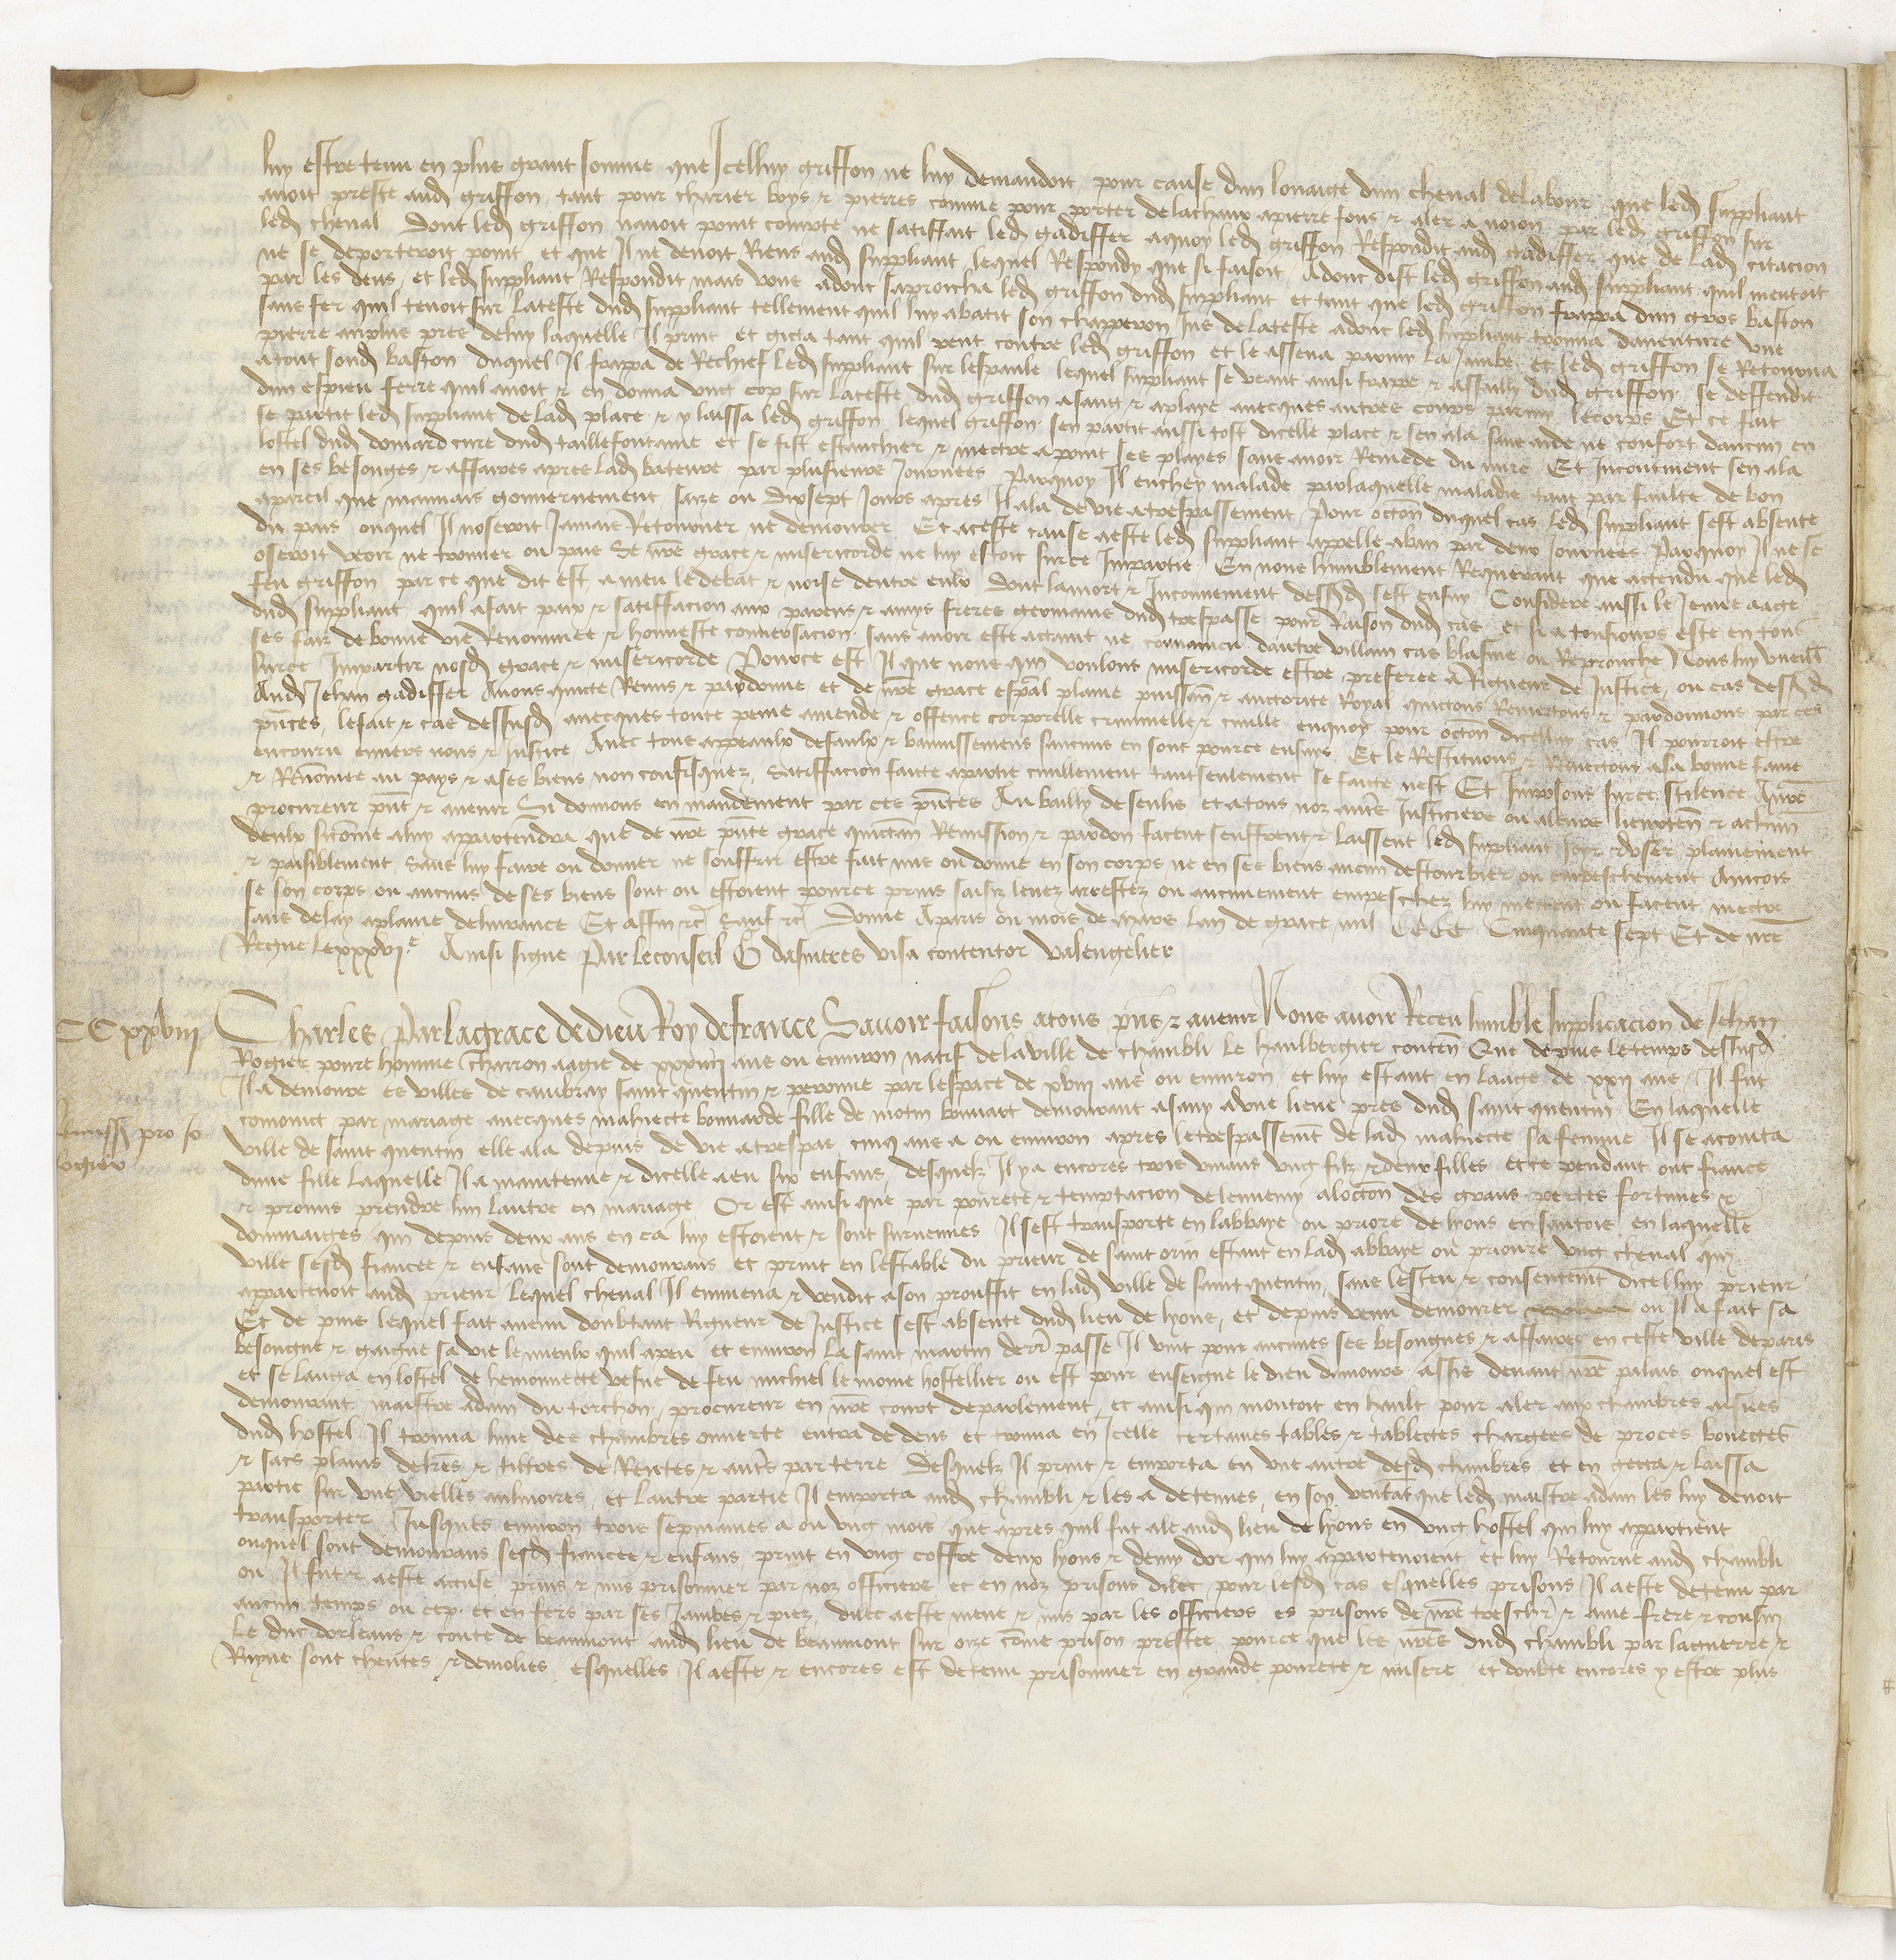 luy estre tenu en plus grant somme que Icelluy griffon ne luy demandoit pour cause dun louaige dun cheval de labour que led suppliant
avoit preste aud griffon tant pour charier boys & pierres comme pour porter de la chaux a pierre fons & aler a noion par led griffon sur
led cheval Dont led griffon navoit point compte ne satiffait led gadiffer aquoy led griffon Respondit aud gadiffer que de lad citacion
ne se deporteroit point et que Il ne devoit Riens aud suppliant lequel Respondy que si faisoit Adonc dist led griffon aud suppliant quil mentoit
par les dens et led suppliant Respondit mais vous adonc saproucha led griffon dud suppliant et tant que led griffon frappa dun gros baston
sans fer quil tenoit sur la teste dud suppliant tellement quil luy abatit son chapperon Jus de la teste adonc led suppliant trouva daventure une
pierre auplus pres de luy laquelle Il print et gicta tant quil peut contre led griffon et le assena parmy la Jambe et led griffon se Retourna
atout soud baston duquel Il frappa de Rechief led suppliant sur lespaule lequel suppliant se veant ainsi frappe & assailly dud griffon se deffendit
dun espieu ferre quil avoit & en donna ung cop sur la teste dud griffon a sang & a playe avecques autres coups parmy le corps Et ce fait
se partit led suppliant de lad place & y laissa led griffon lequel griffon sen partit aussi tost dicelle place & sen ala sans aide ne confort daucun en
lostel dud domard cure dud taillefontaine et se fist estanchier & mectre a point ses playes sans avoir Remede du mire Et Incontinent sen ala
en ses besonges & affaires apres lad bateure par plusieurs Journees Parquoy Il enchey malade par laquelle maladie tant par faulte de bon
apareil que mauvais gouvernement saize ou dixsept Jours apres Il ala de vie a trespassement Pour occon duquel cas led suppliant sest absente
du pais ouquel Il noseroit Jamais Retourner ne demourer Et a ceste cause a este led suppliant appelle a ban par deux Journees Parquoy Il ne se
oseroit veoir ne trouver ou pais se nre grace & misericorde ne luy estoit sur ce Impartie En nous humblement Requerant que actendu que led
feu griffon par ce que dit est a meu le debat & noise dentre eulx Dont la mort & Inconvenient dessusd sest ensuy Considere aussi le Jeune aage
dud suppliant quil a fait paix & satiffacion aux parens & amys freres germains dud trespasse pour Raison dud cas et si a tousiours este en tous
ses fais de bonne vie Renommee & honneste conversacion sans avoir este actaint ne convaincu dautre villain cas blasme ou Reprouche Nous luy vueill
sur ce Impartir nosd grace & misericorde Pource est Il que nous qui voulons misericorde estre preferee a Rigueur de Justice ou cas dessusd
Aud Jehan gadiffer Avons quicte Remis & pardonne et de nre grace espal plaine puissan & auctorite Royal quictons Remectons & pardonnons par ces
pntes le fait & cas dessusd avecques toute peine amende & offence corporelle criminelle & civille enquoy pour occon dicelluy cas Il pourroit estre
encouru envers nous & Justice Avec tous appeaulx defaulx & bannissemens saucuns en sont pour ce ensuys Et le Restituons & Remectons a sa bonne fame
& Renommee au pays & a ses biens non confisquez satiffacion faicte a partie civillement tant seulement se faicte nest Et Imposons sur ce silence A nre
procureur pnt & avenir Si donnons en mandement par ces pntes Au bailly de senlis et a tous noz autrs Justiciers ou a leurs lieuxten & a chun
deulx sicome a luy appartendra que de nre pnte grace quictan Remission & pardon facent seuffrent & laissent led suppliant Joyr & user plainement
& paisiblement sans luy faire ou donner ne souffrir estre fait mis ou donne en son corps ne en ses biens aucun destourbier ou empeschement Aincois
se son corps ou aucuns de ses biens sont ou estoient pour ce prins saisiz levez arrestez ou aucunement empeschez luy mectent ou facent mectre
sans delay a plaine delivrance Et affin & sauf & Donne A paris ou mois de mars lan de grace mil CCCC Cinquante sept Et de nre
Regne le xxxvi e Ainsi signe Par le conseil G dasnieres visa contentor valengelier
CC xxviii
Charles Par la grace de dieu Roy de france Savoir faisons a tous pns & avenir Nous avoir Receu lumble supplicacion de Jehan
Rogier povre homme Charron aagie de xxxiiii ans ou environ natif de la ville de chambli le haulbergier conten Que depuis le temps dessusd
Il a demoure es villes de cambray saint quentin & peronne par lespace de xviii ans ou environ et luy estant en laage de xxii ans Il fut
Remiss pro Jo
Rogier
conioinct par mariage avecques mahiecte bonnarde fille de motin bonnart demourant a sauy a une lieue pres dud saint quentin En laquelle
ville de saint quentin elle ala depuis de vie a trespas cinq ans a ou environ apres le trespassemt de lad mahiecte sa femme Il se acointa
dune fille laquelle Il a maintenue & dicelle a eu six enfans desquelz Il y a encores trois vivans ung filz & deux filles et ce pendant ont fiance
& promis prendre lun lautre en mariage Or est ainsi que par povrete & temptacion de lennemy a loccon des grans pertes fortunes &
dommaiges qui depuis deux ans en ca luy estoient & sont survenues Il sest transporte en labbaye ou priore de lyons en santois en laquelle
ville sesd fiancee & enfans sont demourans et print en lestable du prieur de saint orin estant en lad abbaye ou prioure ung cheval qui
appartenoit aud prieur lequel cheval Il emmena & vendit a son prouffit en lad ville de saint quentin sans lesceu & consentemt dicelluy prieur
Et de puis lequel fait avenu doubtant Rigueur de Justice sest absente dud lieu de lyons et depuis venu demourer ou Il a fait sa
besongne & gaigne sa vie le mieulx quil a peu et environ la saint martin derr passe Il vint pour aucunes ses besongnes & affaires en ceste ville de paris
et se lauta en lostel de hemonnecte vefve de feu michiel le moine hostellier ou est pour enseigne le dieu damours assis devant nre palais ouquel est
demourant maistre adam du torchon procureur en nre court de parlement et ainsi qui montoit en hault pour aler aux chambres aisiees
dud hostel Il trouva lune des chambres ouverte entra dedens et trouva en Icelle certaines tables & tablectes chargees de proces bonectes
& sacs plains de lres & tiltres de Rentes & autrs par terre Desquelz Il print & emporta en une autre desd chambres et en gecta & laissa
partie sur unes vielles aulmoires et lautre partie Il emporta aud chambli & les a detenues en soy ventant que led maistre adam les luy devoit
transporter Jusques environ trois sepmaines a ou ung mois que apres quil fut ale aud lieu de lyons en ung hostel qui luy appartient
ouquel sont demourans sesd fiancee & enfans print en ung coffre deux lyons & demy dor qui luy appartenoient et luy Retourne aud chambli
ou Il fut & a este accuse prins & mis prisonnier par noz officiers et en noz prisons dilec pour lesd cas esquelles prisons Il a este detenu par
aucun temps ou cep et en fers par ses Jambes & piez dilec a este mene & mis par les officiers es prisons de nre treschr & ame frere & cousin
le duc dorleans & conte de beaumont aud lieu de beaumont sur oize come prison prestee pource que les nres dud chambli par la guerre &
Ruyne sont cheutes & demolies esquelles Il a este & encores est detenu prisonnier en grande povrete & misere et doubte encores y estre plus